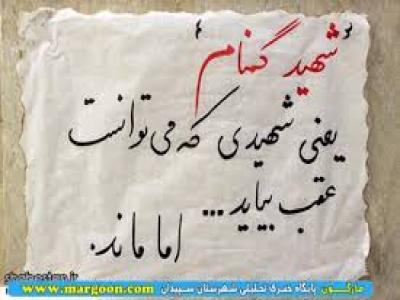 "شهید گمنام"
یعنی شهیدی که می‌توانست
عقب بیاید...
اما ماند.
shabestan.ir
مارگون پایگاه خبری تحلیلی شهرستان سپیدان www.margoon.com